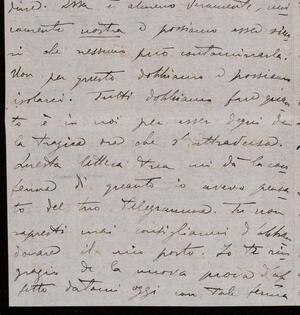 dire. Essa è almeno veramente, uni
camente nostra e possiamo esser sicu
ri che nessuno può contaminarla.
Non per questo dobbiamo e possiamo
isolarci. Tutti dobbiamo fare quan
to è in noi per esser degni del
la tragica ora che s'attraversa.
Questa lettera tua mi dà la con
ferma di quanto io avevo pensa
to del tuo telegramma. Tu non
sapresti mai consigliarmi d'abban
donare il mio posto. Io te rin
grazio de la nuova prova d'af
fetto datami oggi con tale ferma